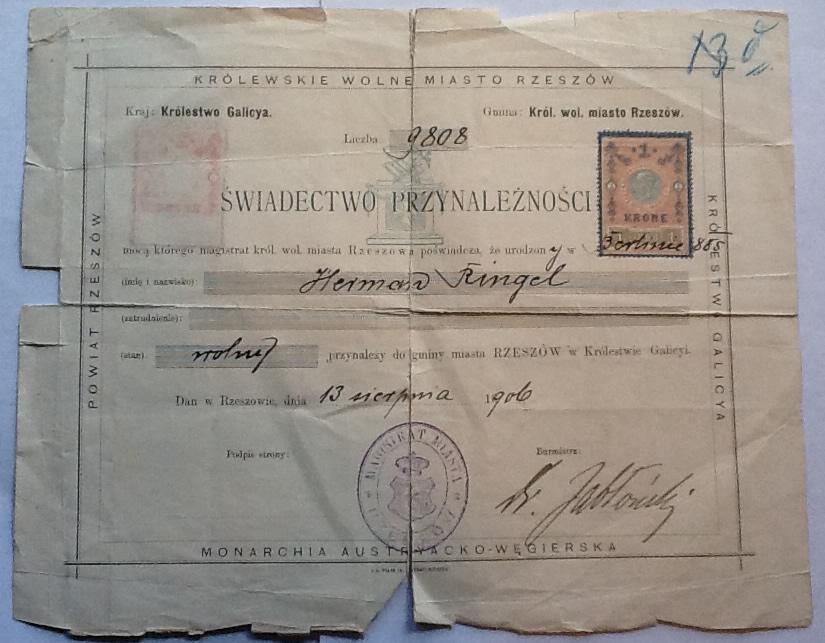 KRÓLEWSKIE WOLNE MIASTO RZESZÓW
Kraj: Królestwo Galicya.
Gmina: Król. wol. miasto Rzeszów.
Liczba 9808
1
KRONE
ŚWIADECTWO PRZYNALEŻNOŚCI
mocą którego magistrat król. wol. miasta Rzeszowa poświadcza, że urodzony w Berlinie 1885
(imię i nazwisko): Herman Ringel
(zatrudnienie):
(stan): wolny przynależy do gminy miasta RZESZÓW w Królestwie Galicyi.
Dan w Rzeszowie, dnia 13 sierpnia 1906
Podpis strony:
Burmistrz:
MAGISTRAT MIASTA
Dr. Jabłoński
MONARCHIA AUSTRYACKO-WĘGIERSKA
POWIAT RZESZÓW
KRÓLESTWO GALICYA